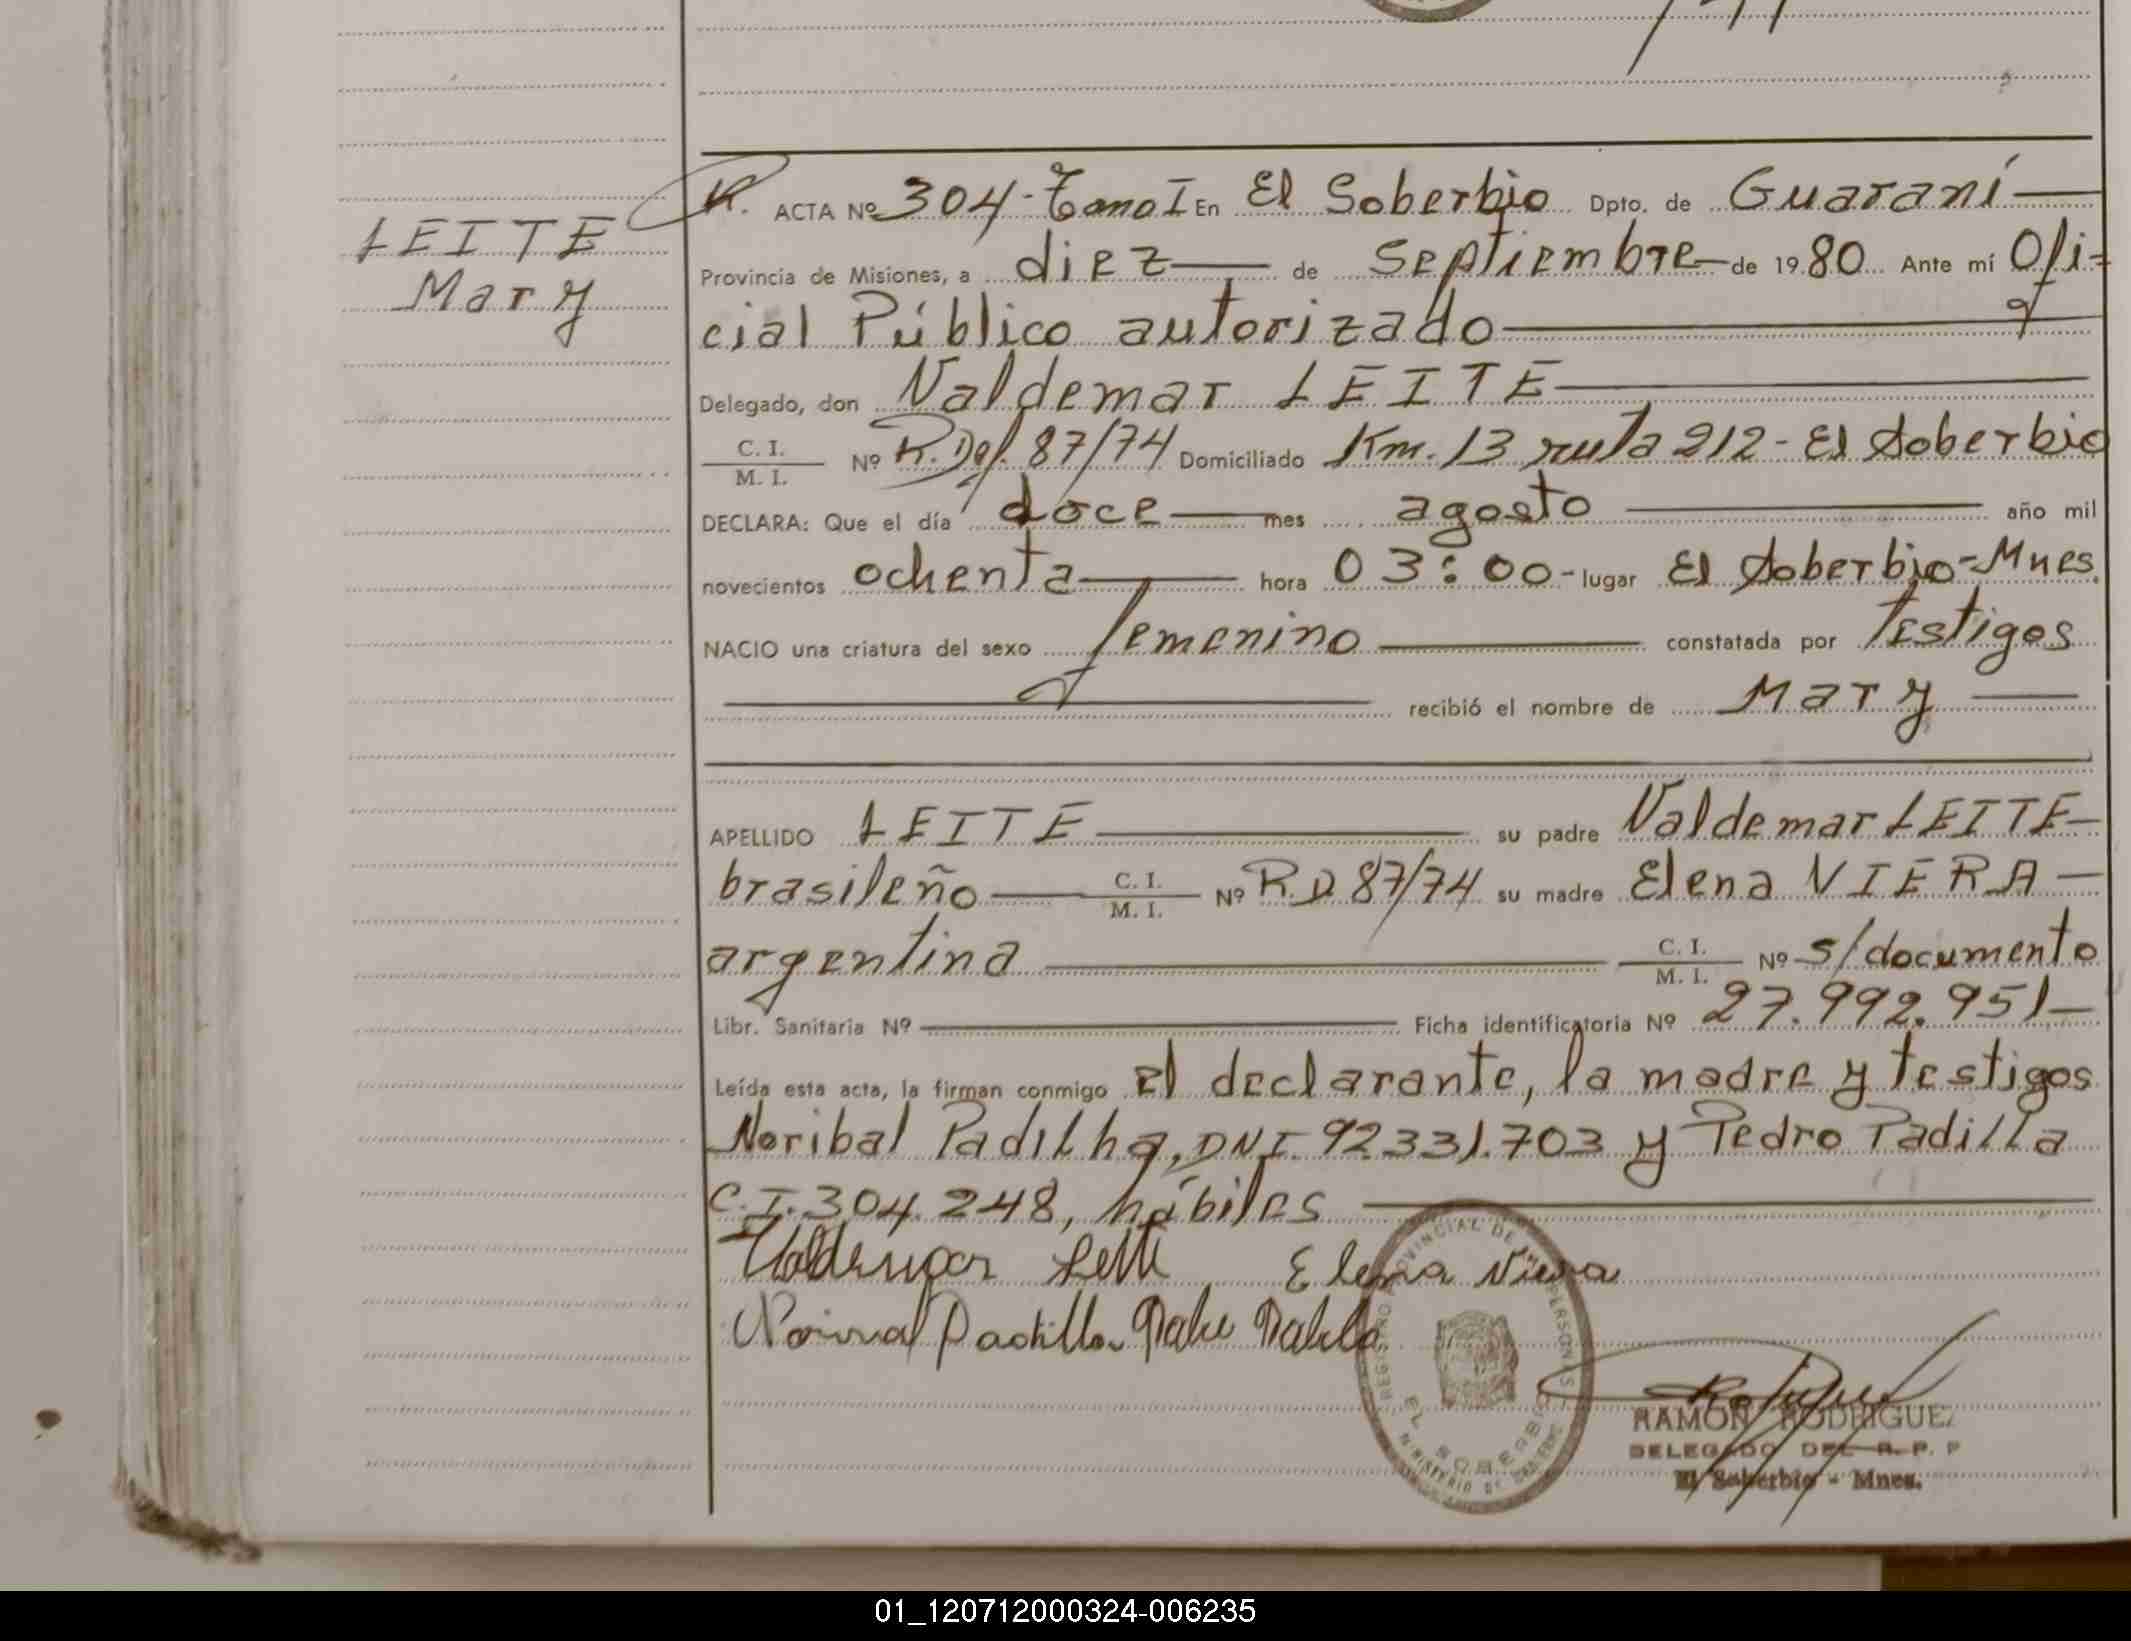 LEITE
Mary
R. ACTA Nº 304 - Tomo I En El Soberbio Dpto. de Guaraní
Provincia de Misiones, a diez de Septiembre de 1980 Ante mí Ofi-
cial Público autorizado
Delegado, don Valdemar LEITE
C. I.
M. I. Nº R.Def. 87/74 Domiciliado Km. 13 ruta 212 - El Soberbio
DECLARA: Que el día doce mes agosto año mil
novecientos ochenta hora 03:00 - lugar El Soberbio - Mnes.
NACIO una criatura del sexo femenino constatada por Testigos
recibió el nombre de Mary
APELLIDO LEITE su padre Valdemar LEITE
brasileño C. I. M. I. Nº R.D 87/74 su madre Elena VIERA
argentina C. I. M. I. Nº s/documento
Libr. Sanitaria Nº Ficha identificatoria Nº 27.992.951
Leída esta acta, la firman conmigo El declarante, la madre y testigos
Noribal Padilha, DNI. 92.331.703 y Pedro Padilla
C.I. 304.248, hábiles
Valdemar Leite Elena Viera
Padilla
REGISTRO PROVINCIAL DE LAS PERSONAS
EL SOBERBIO
MINISTERIO DE GOBIERNO
RAMON RODRIGUEZ
DELEGADO DEL R. P. P
El Soberbio - Mnes.
01_120712000324-006235